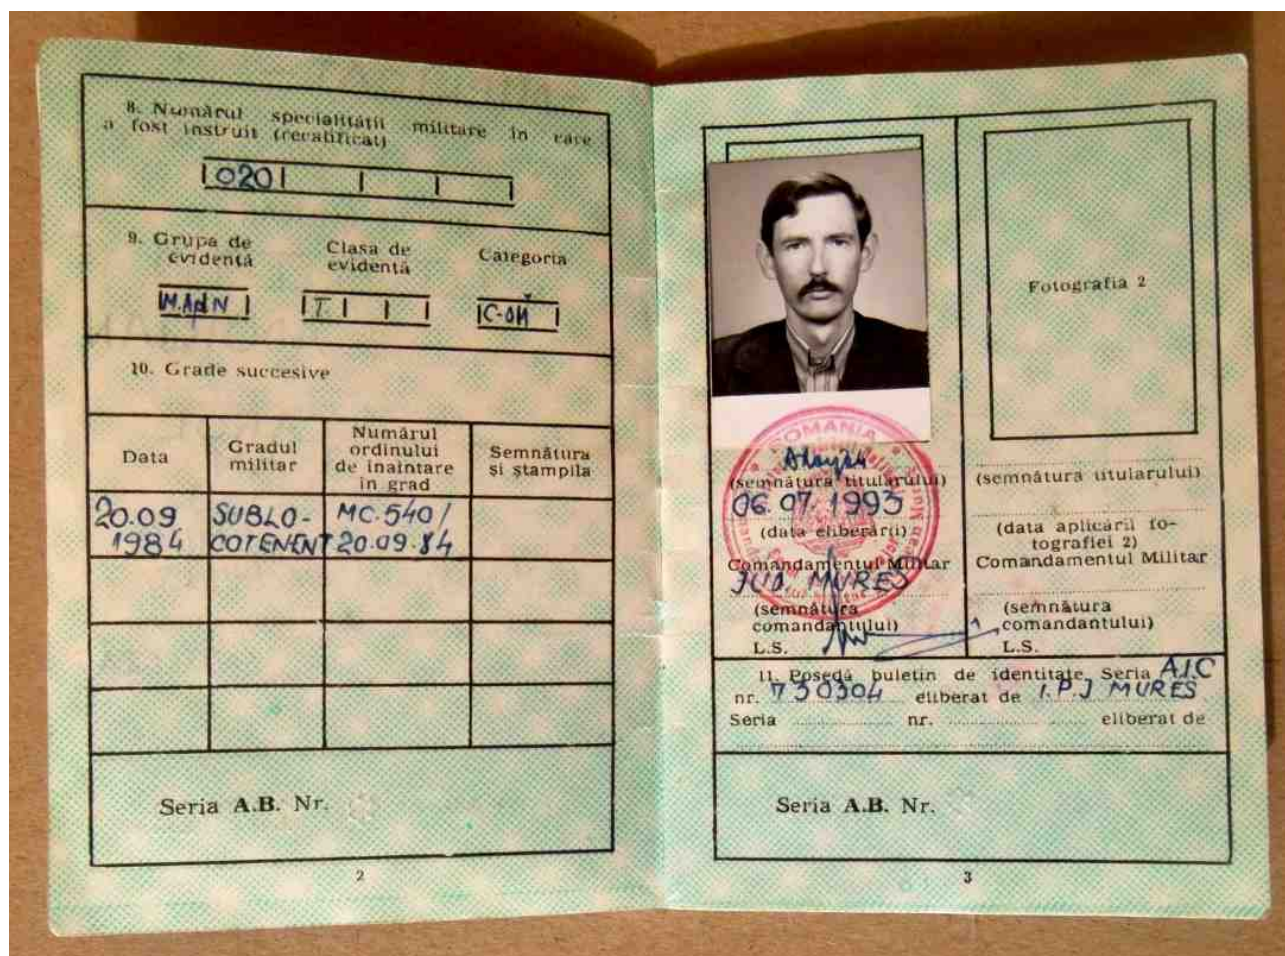 8. Numărul specialității militare în care
a fost instruit (recalificat)
020
9. Grupa de evidență
Clasa de evidență
Categoria
M.Ap N
I
10. Grade succesive
Data
Gradul militar
Numărul ordinului de înaintare în grad
Semnătura și ștampila
20.09 1984
SUBLO-COTENENT
MC.540/ 20.09.84
Seria A.B. Nr.
2
ROMANIA
(semnătura titularului)
06.07.1993
(data eliberării)
Comandamentul Militar
JUD. MUREȘ
(semnătura
comandantului)
L.S.
Fotografia 2
(semnătura titularului)
(data aplicării fo-
tografiei 2)
Comandamentul Militar
(semnătura
comandantului)
L.S.
11. Posedă buletin de identitate Seria A.I.C
nr. 730304 eliberat de I.P.J MUREȘ
Seria nr. eliberat de
Seria A.B. Nr.
3